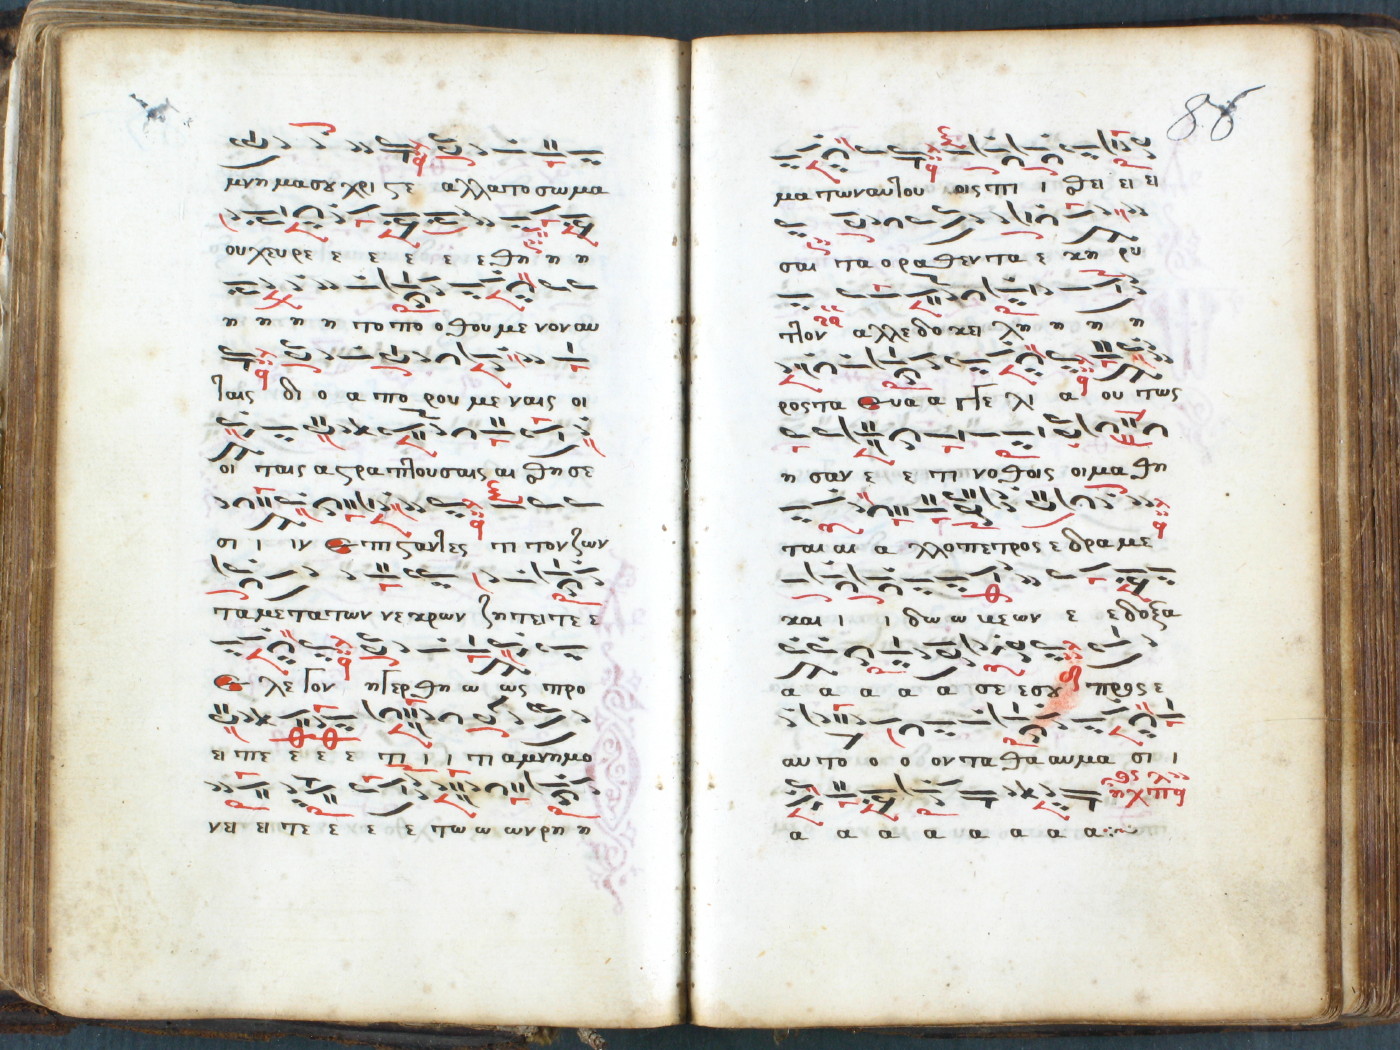 μνη μα σου χρι ϛε αλλα το σω μα
ου χευ ρε ε ε ε ε ε θη η η
η η η η το πο ο θου με νον αυ
ταις δι ο α πο ρου με ναις οι
οι ταις α ϛρα πτου σαις αι θη σε
σι ι ιν ε πι ϛαντες τι τον ζων
τα με τα των νε κρων ζη τει τε ε
ε λε γον ηγερ θη ω ως προ
ει πε ε ε ε τι ι ι τι α μνη μο
νει ει τε ε ε ε τω ω ων ρη η
86
μα των αυτου οις πι ι θει ει ει
σαι τα ο ρα θεν τα ε κη ρυ
τον αλλ εδο κει λη η η η
ρος τα ευ α α γγε λι α ου πως
η σαν ε ε τι νο θοις οι μα θη
ται αι α λλο πετρος ε δρα με
και ι ι δω ω ων ε ε δοξα
α α α α α σε ε σου προς ε
αυ το ο ο ον τα θα αυμα σι ι
α α α α α α α α